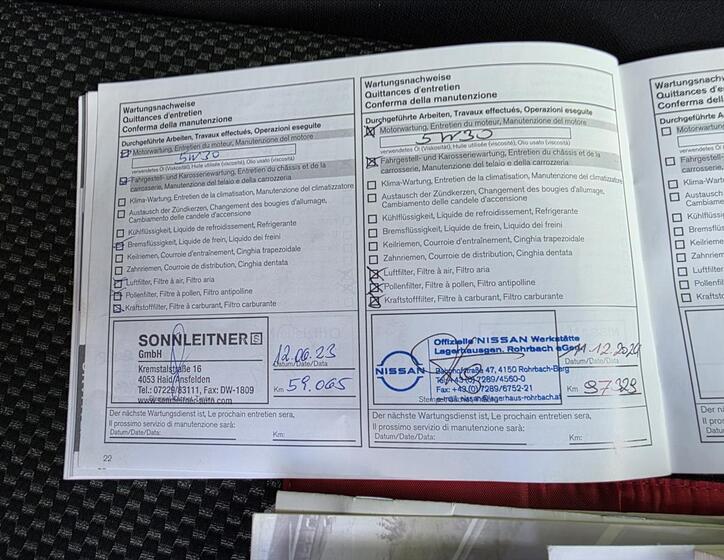 Wartungsnachweise
Quittances d'entretien
Conferma della manutenzione
Durchgeführte Arbeiten, Travaux effectués, Operazioni eseguite
Motorwartung, Entretien du moteur, Manutenzione del motore
5W30
verwendetes Öl (Viskosität), Huile utilisée (viscosité), Olio usato (viscosità)
Fahrgestell- und Karosseriewartung, Entretien du châssis et de la
carrosserie, Manutenzione del telaio e della carrozzeria
Klima-Wartung, Entretien de la climatisation, Manutenzione del climatizzatore
Austausch der Zündkerzen, Changement des bougies d'allumage,
Cambiamento delle candele d'accensione
Kühlflüssigkeit, Liquide de refroidissement, Refrigerante
Bremsflüssigkeit, Liquide de frein, Liquido dei freini
Keilriemen, Courroie d'entraînement, Cinghia trapezoidale
Zahnriemen, Courroie de distribution, Cinghia dentata
Luftfilter, Filtre à air, Filtro aria
Pollenfilter, Filtre à pollen, Filtro antipolline
Kraftstofffilter, Filtre à carburant, Filtro carburante
SONNLEITNER S
GmbH
Kremstalstraße 16
4053 Haid/Ansfelden
Tel.: 07229/83111, Fax: DW-1809
www.sonnleitner.com
12.06.23
Datum/Date/Data:
Km 59.065
Der nächste Wartungsdienst ist, Le prochain entretien sera,
Il prossimo servizio di manutenzione sarà:
Datum/Date/Data:
Km:
22
Wartungsnachweise
Quittances d'entretien
Conferma della manutenzione
Durchgeführte Arbeiten, Travaux effectués, Operazioni eseguite
Motorwartung, Entretien du moteur, Manutenzione del motore
5W30
verwendetes Öl (Viskosität), Huile utilisée (viscosité), Olio usato (viscosità)
Fahrgestell- und Karosseriewartung, Entretien du châssis et de la
carrosserie, Manutenzione del telaio e della carrozzeria
Klima-Wartung, Entretien de la climatisation, Manutenzione del climatizzatore
Austausch der Zündkerzen, Changement des bougies d'allumage,
Cambiamento delle candele d'accensione
Kühlflüssigkeit, Liquide de refroidissement, Refrigerante
Bremsflüssigkeit, Liquide de frein, Liquido dei freini
Keilriemen, Courroie d'entraînement, Cinghia trapezoidale
Zahnriemen, Courroie de distribution, Cinghia dentata
Luftfilter, Filtre à air, Filtro aria
Pollenfilter, Filtre à pollen, Filtro antipolline
Kraftstofffilter, Filtre à carburant, Filtro carburante
NISSAN
Offizielle NISSAN Werkstätte
Lagerhausgen. Rohrbach eGen
Bahnhofstraße 47, 4150 Rohrbach-Berg
Tel: +43 (0) 7289/4560-0
Fax: +43 (0) 7289/6752-21
e-mail: nissan@lagerhaus-rohrbach.at
12.2024
Datum/Date/Data:
Km 97329
Der nächste Wartungsdienst ist, Le prochain entretien sera,
Il prossimo servizio di manutenzione sarà:
Datum/Date/Data:
Km:
Quittances
Conferma
Durchgeführte
Fahrgestell-
Klima-Wart
Austausch
Kühlflüssig
Bremsflüss
Keilriemen
Zahnriemen
Luftfilter,
Pollenfilter
Kraftstoff